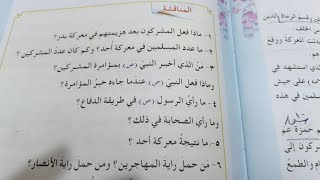 المناقشة
١- ماذا فعل المشركون بعد هزيمتهم في معركة بدر؟
٢- ما عدد المسلمين في معركة أحد؟ وكم كان عدد المشركين؟
٣- من الذي أخبر النبي (ص) بمؤامرة المشركين؟
وماذا فعل النبي (ص) عندما جاءه خبر المؤامرة؟
٤- ما رأي الرسول (ص) في طريقة الدفاع؟
وما رأي الصحابة في ذلك؟
٥- ما نتيجة معركة أحد؟
٦- من حمل راية المهاجرين؟ ومن حمل راية الأنصار؟
الرماة
معركة ووقع
استشهد في
على جيش
حمزة